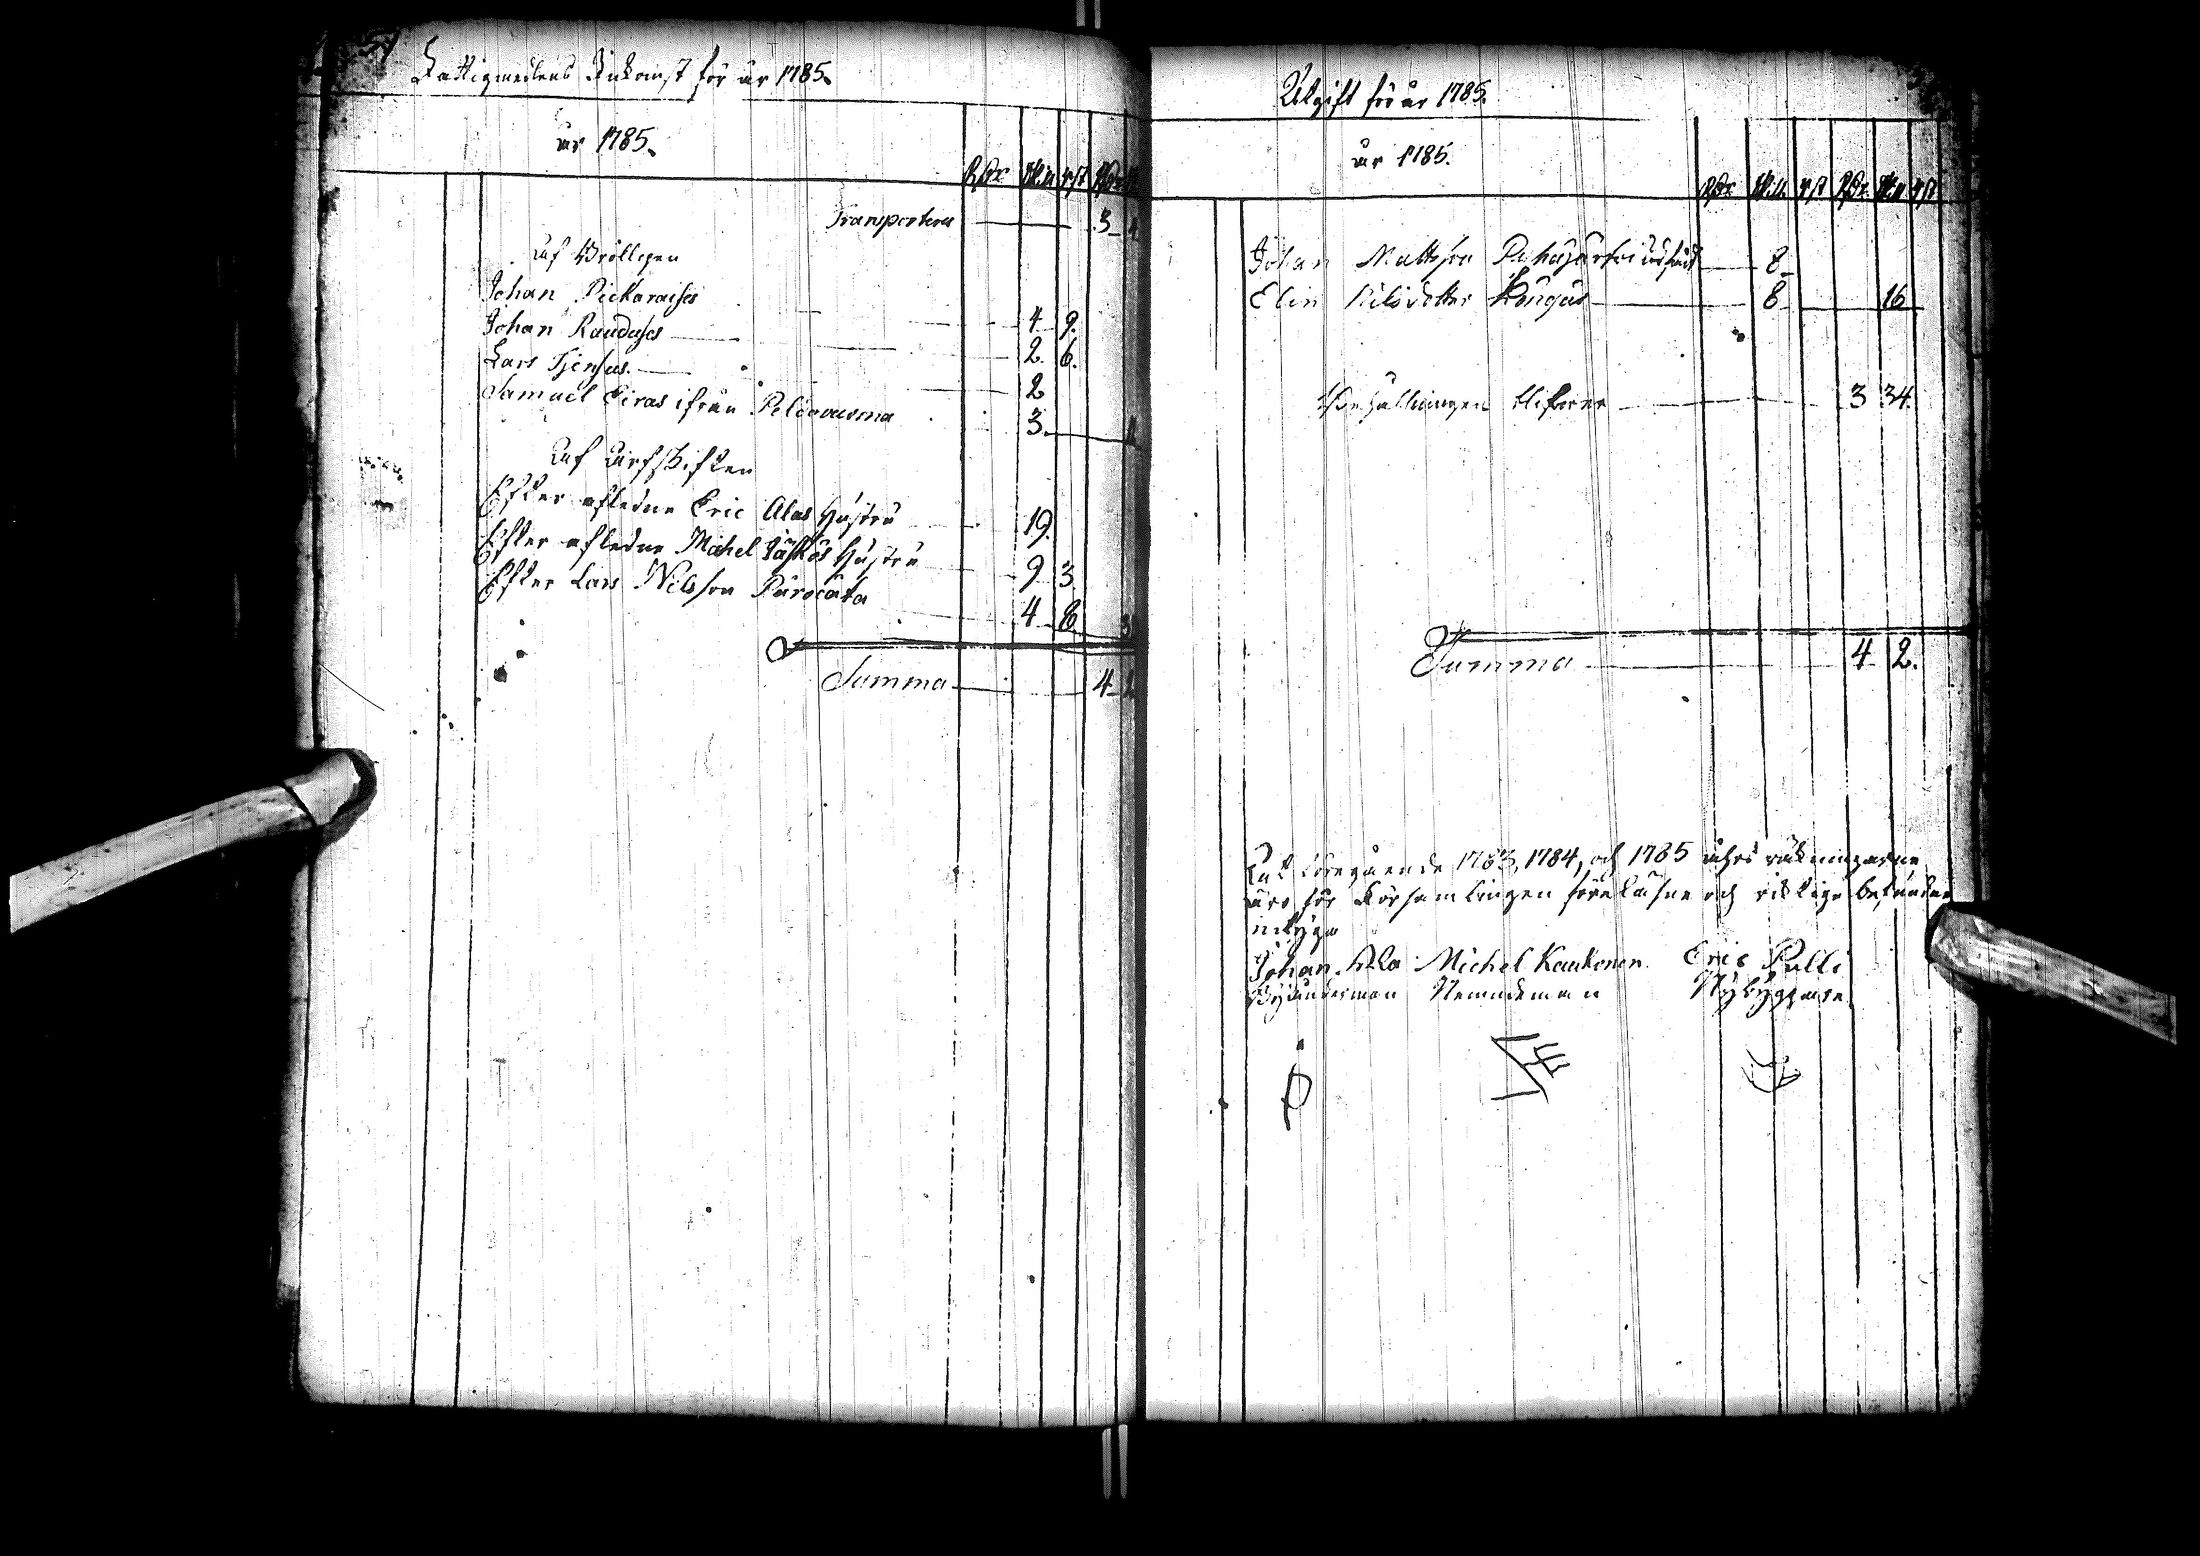 Fattigmedlens Inkomst för år 1785.
år 1785.
Rdr Skill rst Rdr
Transporteras 3
af Bröllopen
Johan Pickaraises 4 9.
Johan Raudases 2. 6.
Lars Tjensus. 2
Samuel Eiras ifrån Peldovuoma 3.
af arfskiften
Efter afledne Eric Alas Hustru 19.
Efter afledne Michel Jäskös Hustru 9 3
Efter Lars Nilsson 4 8
Summa 4
Utgift för år 1785.
år 1785.
Rdr Skill rst Rdr Skill rst
Johan Mattsson 8
Elin Nilsdotter Kangas 8 16
Behållningen blifver 3 34.
Summa 4 2.
At föregående 1783, 1784, och 1785 åhrs räkningarne
äro för församlingen föreläsne och riktige befundne
intyga
Johan Michel Kaukonen. Eric Pulli
Byålderman Nemndeman Nybyggare.